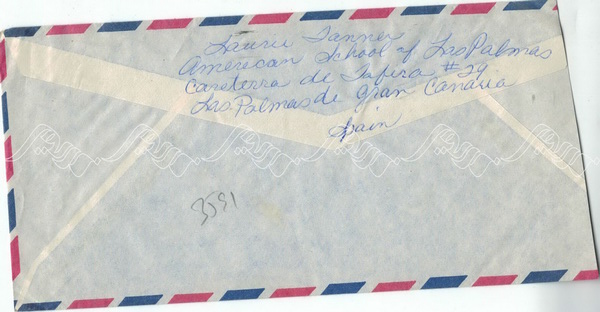 Laurie Tanner
American School of Las Palmas
Careterra de Tafira # 29
Las Palmas de Gran Canaria
Spain
3591